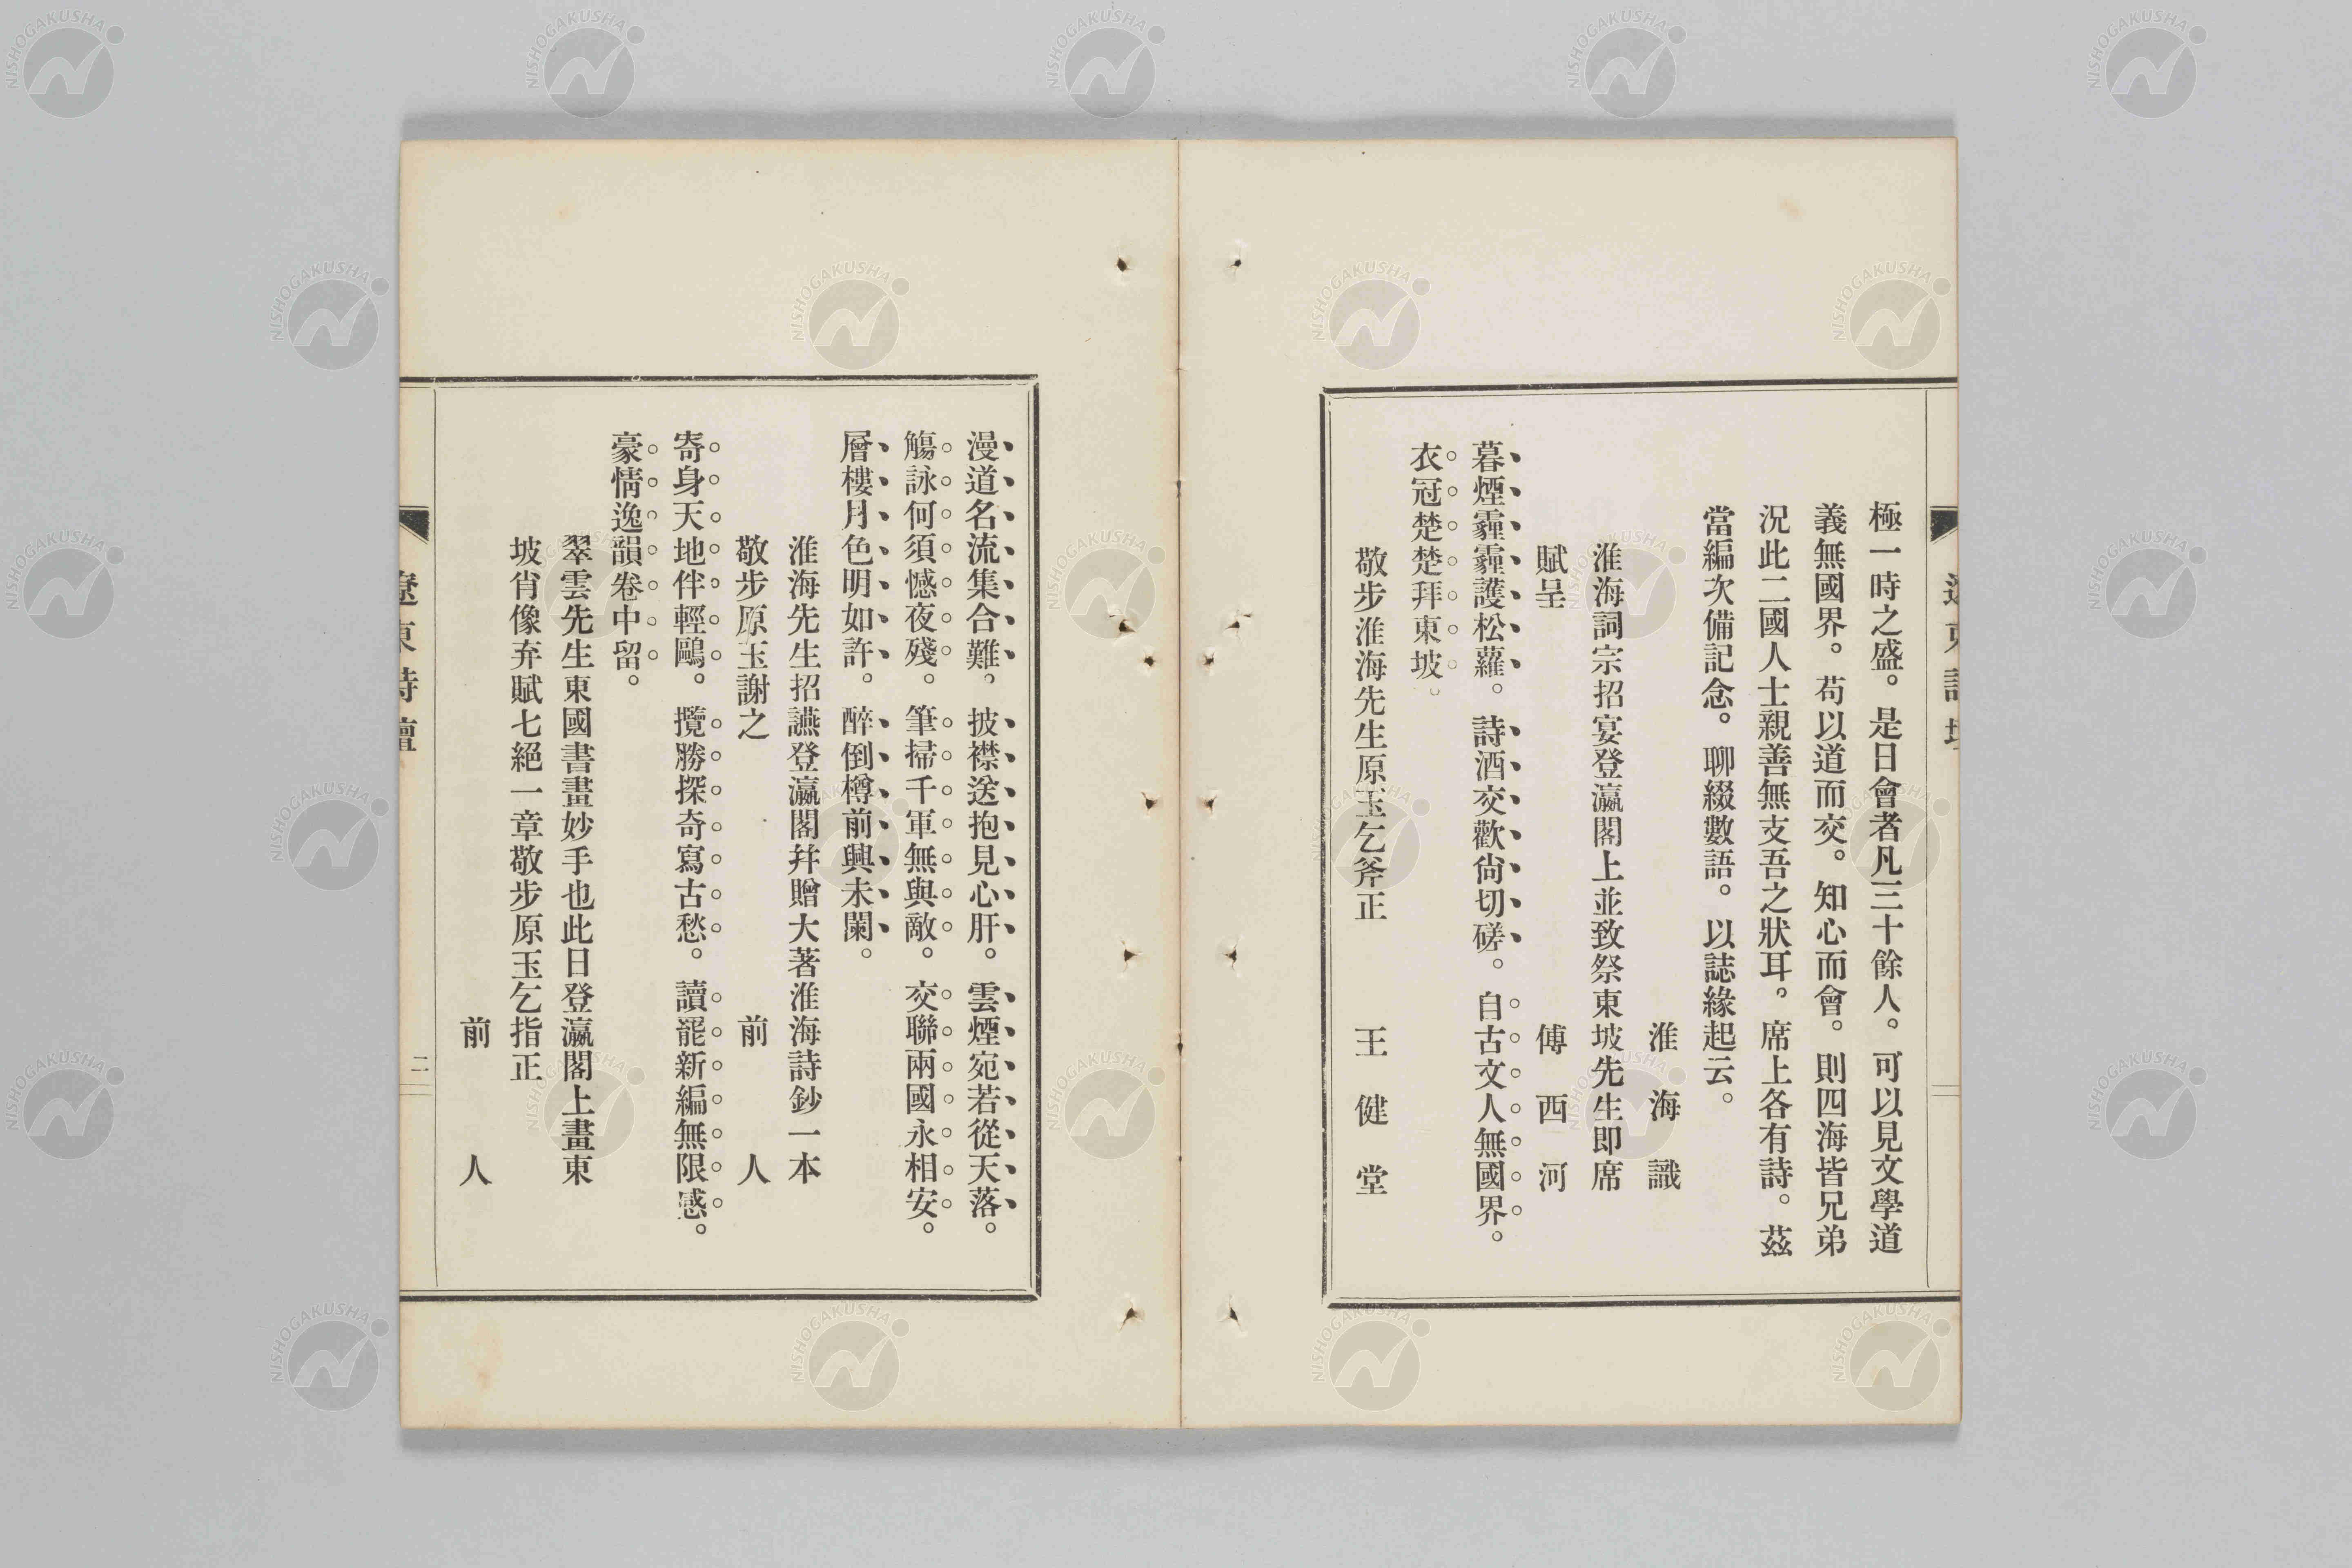 極一時之盛。是日會者凡三十餘人。可以見文學道
義無國界。苟以道而交。知心而會。則四海皆兄弟
況此二國人士親善無支吾之狀耳。席上各有詩。茲
當編次備記念。聊綴數語。以誌緣起云。
淮海識
淮海詞宗招宴登瀛閣上並致祭東坡先生即席
賦呈 傅西河
暮煙霾霾護松蘿。詩酒交歡尙切磋。自古文人無國界。
衣冠楚楚拜東坡。
敬步淮海先生原玉乞斧正 王健堂
漫道名流集合難。披襟送抱見心肝。雲煙宛若從天落。
觴詠何須憾夜殘。筆掃千軍無與敵。交聯兩國永相安。
層樓月色明如許。醉倒樽前興未闌。
淮海先生招讌登瀛閣幷贈大著淮海詩鈔一本
敬步原玉謝之 前人
寄身天地伴輕鷗。攬勝探奇寫古愁。讀罷新編無限感。
豪情逸韻卷中留。
翠雲先生東國書畫妙手也此日登瀛閣上畫東
坡肖像弃賦七絕一章敬步原玉乞指正
前人
遼東詩壇
二
NISHOGAKUSHA